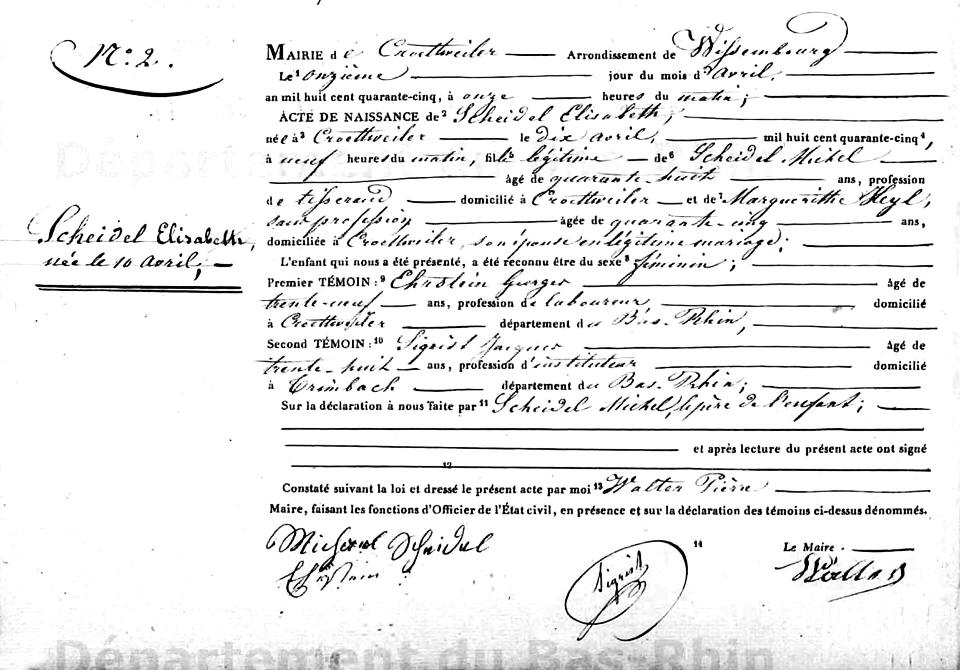 N.° 2.
MAIRIE de Croettweiler Arrondissement de Wissembourg
Le¹ onzième jour du mois d'avril,
an mil huit cent quarante-cinq, à onze heures du matin;
ACTE DE NAISSANCE de² Scheidel Elisabeth;
née à³ Croettweiler le dix avril, mil huit cent quarante-cinq⁴,
à neuf heures du matin, fille⁵ légitime de⁶ Scheidel Michel
âgé de quarante-huit ans, profession
de tisserand domicilié à Croettweiler et de⁷ Marguerithe Heyl,
sans profession âgée de quarante-cinq ans,
domiciliée à Croettweiler, son épouse en légitime mariage;
Scheidel Elisabeth,
née le 10 avril;
L'enfant qui nous a été présenté, a été reconnu être du sexe⁸ féminin;
Premier TÉMOIN:⁹ Ehrstein Georges âgé de
trente-neuf ans, profession de laboureur domicilié
à Croettweiler département du Bas-Rhin,
Second TÉMOIN:¹⁰ Sigrist Jacques âgé de
trente-huit ans, profession d'instituteur domicilié
à Trimbach département du Bas-Rhin;
Sur la déclaration à nous faite par¹¹ Scheidel Michel, le père de l'enfant;
et après lecture du présent acte ont signé
12
Constaté suivant la loi et dressé le présent acte par moi¹³ Walter Pierre
Maire, faisant les fonctions d'Officier de l'État civil, en présence et sur la déclaration des témoins ci-dessus dénommés.
Michael Scheidel
Ehrstein
Sigrist
14
Le Maire.
Walter
Département du Bas-Rhin